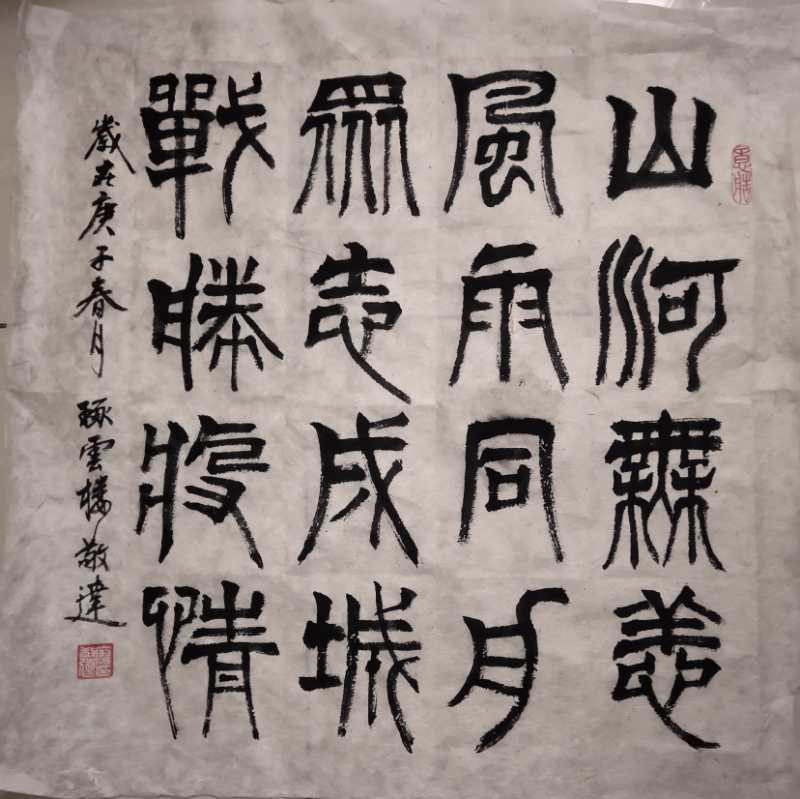 山河無恙
風雨同舟
眾志成城
戰勝疫情
歲在庚子春月
雲樓敬